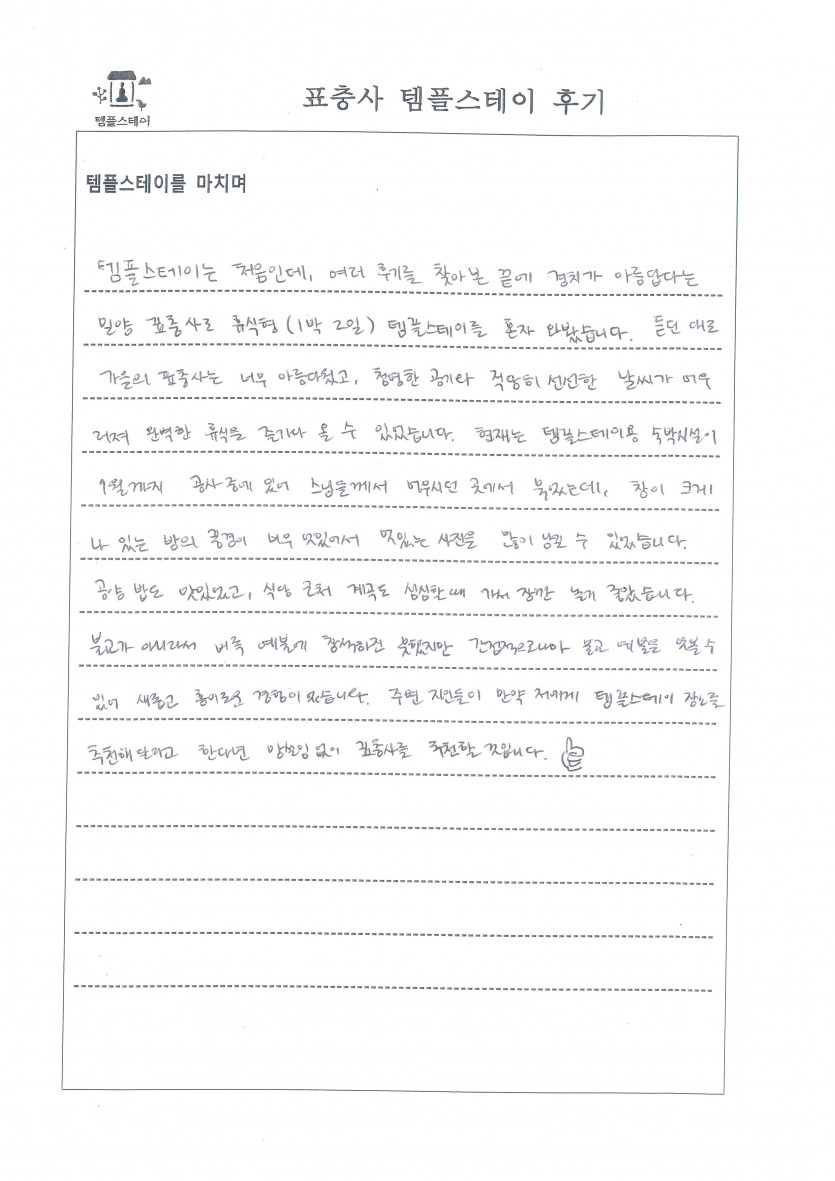 템플스테이
표충사 템플스테이 후기
템플스테이를 마치며
템플스테이는 처음인데, 여러 후기를 찾아본 끝에 경치가 아름답다는
밀양 표충사로 휴식형(1박 2일) 템플스테이를 혼자 와봤습니다. 듣던 대로
가을의 표충사는 너무 아름다웠고, 청명한 공기와 적당히 선선한 날씨가 어우
러져 완벽한 휴식을 즐기다 올 수 있었습니다. 현재는 템플스테이용 숙박시설이
9월까지 공사 중에 있어 스님들께서 머무시던 곳에서 묵었는데, 창이 크게
나 있는 방의 풍경이 너무 멋있어서 멋있는 사진을 많이 남길 수 있었습니다.
공양 밥도 맛있었고, 식당 근처 계곡도 심심할때 가서 잠깐 놀기 좋았습니다.
불교가 아니라서 비록 예불에 참석하진 못했지만 간접적으로나마 불교 예불을 엿볼 수
있어 새롭고 흥미로운 경험이었습니다. 주변 지인들이 만약 저에게 템플스테이 장소를
추천해달라고 한다면 망설임없이 표충사를 추천할 것입니다.